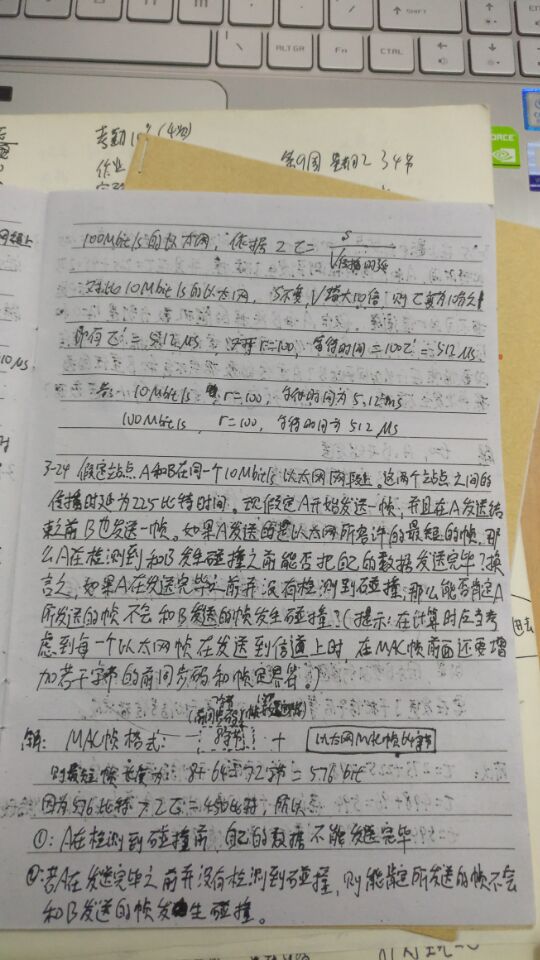 SHIFT
ALTGR
Fn
CTRL
考勤10% (4次)
作业
第9周 星期2 34节
100Mbit/s的以太网，依据 2τ=
对比10Mbit/s的以太网，S不变
即有τ' = 5.12μs 对于r=100，等待时间=100τ' = 512μs
答: 10Mbit/s r=100，等待时间为5.12ms
100Mbit/s，r=100，等待时间为512μs
3-24 假定站点A和B在同一个10Mbit/s以太网网段上。这两个站点之间的
传播时延为225比特时间。现假定A开始发送一帧，并且在A发送结
束之前B也发送一帧。如果A发送的是以太网所容许的最短的帧，那
么A在检测到和B发生碰撞之前能否把自己的数据发送完毕？换
言之，如果A在发送完毕之前并没有检测到碰撞，那么能否肯定A
所发送的帧不会和B发送的帧发生碰撞？(提示：在计算时应当考
虑到每一个以太网帧在发送到信道上时，在MAC帧前面还要增
加若干字节的前同步码和帧定界符。)
解: MAC帧格式: 8字节 + 以太网MAC帧64字节
则最短帧长度为: 8+64=72字节=576 bit
因为576比特>2τ=450比特，所以
①: A在检测到碰撞前，自己的数据不能发送完毕
②: 若A在发送完毕之前并没有检测到碰撞，则能肯定所发送的帧不会
和B发送的帧发生碰撞。